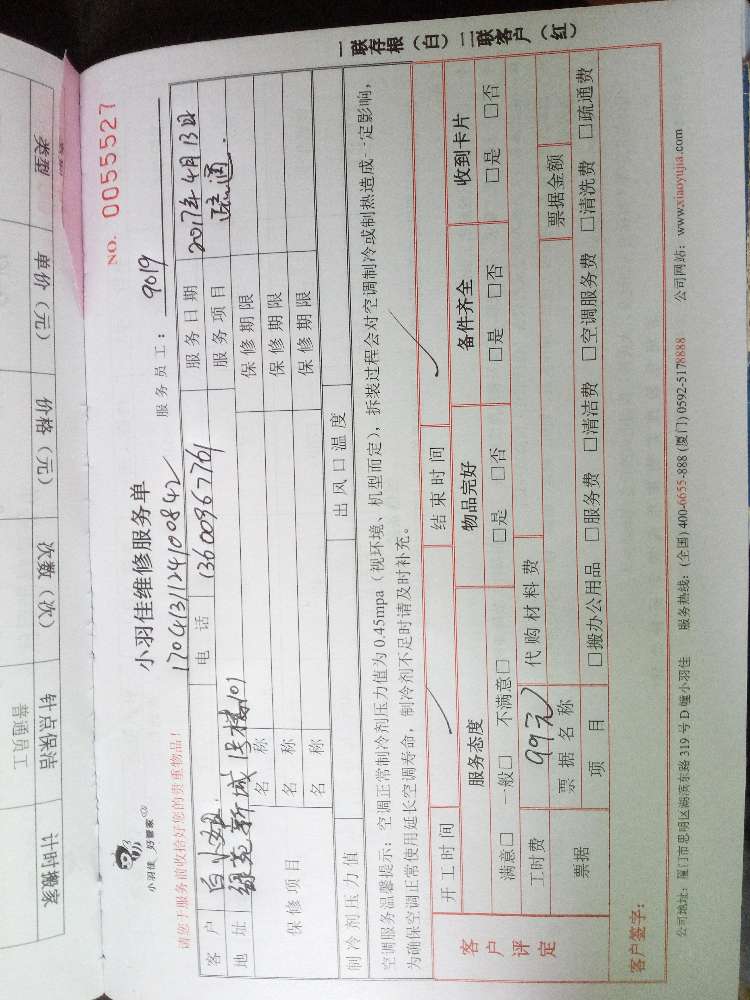 NO. 0055527
一联存根（白）二联客户（红）
小羽佳 好管家
小羽佳维修服务单
1704131124100842
服务员工： 9019
请您于服务前收拾好您的贵重物品！
客 户 白小姐 电 话 13600967761 服务日期 2017年4月13日
地 址 绿苑新城15楼101 服务项目 疏通
保修项目
名 称 保修期限
名 称 保修期限
名 称 保修期限
制冷剂压力值 出风口温度
空调服务温馨提示：空调正常制冷剂压力值为0.45mpa（视环境、机型而定），拆装过程会对空调制冷或制热造成一定影响，
为确保空调正常使用延长空调寿命，制冷剂不足时请及时补充。
客户评定
开工时间 结束时间
服务态度 物品完好 备件齐全 收到卡片
满意□ 一般□ 不满意□ □是 □否 □是 □否 □是 □否
工时费 99元 代购材料费
票据 票据名称 票据金额
项 目 □搬办公用品 □服务费 □清洁费 □空调服务费 □清洗费 □疏通费
客户签字：
公司地址：厦门市思明区湖滨东路319号D幢小羽佳 服务热线：(全国) 400-6655-888 (厦门) 0592-5178888 公司网站：www.xiaoyujia.com
类型 单价（元） 价格（元） 次数（次） 钟点保洁 计时搬家
普通员工